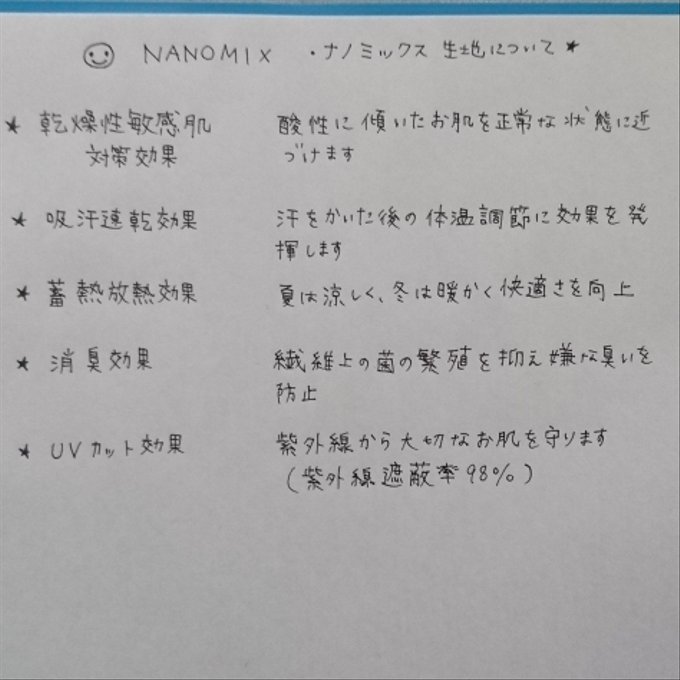 ☺ NANOMIX ・ナノミックス 生地について★
★ 乾燥性敏感肌 酸性に傾いたお肌を正常な状態に近
対策効果 づけます
★ 吸汗速乾効果 汗をかいた後の体温調節に効果を発
揮します
★ 蓄熱放熱効果 夏は涼しく、冬は暖かく快適さを向上
★ 消臭効果 繊維上の菌の繁殖を抑え嫌な臭いを
防止
★ UVカット効果 紫外線から大切なお肌を守ります
(紫外線遮蔽率98%)